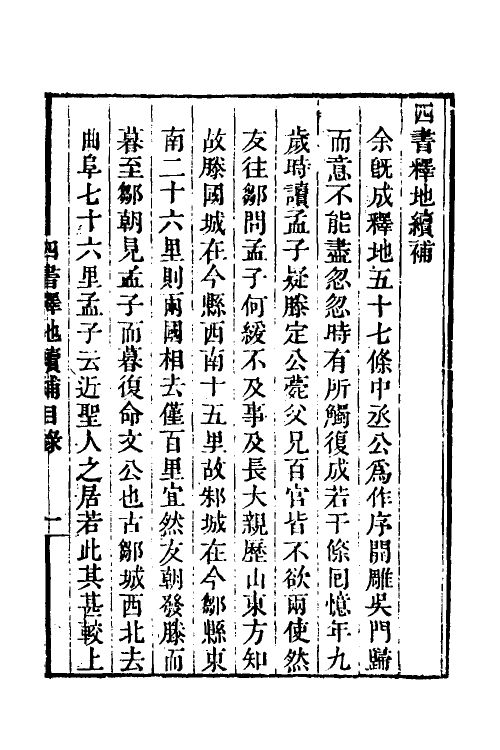 四書釋地續補
余既成釋地五十七條中丞公爲作序開雕吳門歸
而意不能盡忽忽時有所觸復成若干條囘憶年九
歲時讀孟子疑滕定公薨父兄百官皆不欲兩使然
友往鄒問孟子何緩不及事及長大親歷山東方知
故滕國城在今縣西南十五里故邾城在今鄒縣東
南二十六里則兩國相去僅百里宜然友朝發滕而
暮至鄒朝見孟子而暮復命文公也古鄒城西北去
曲阜七十六里孟子云近聖人之居若此其甚較上
四書釋地續補目錄
一